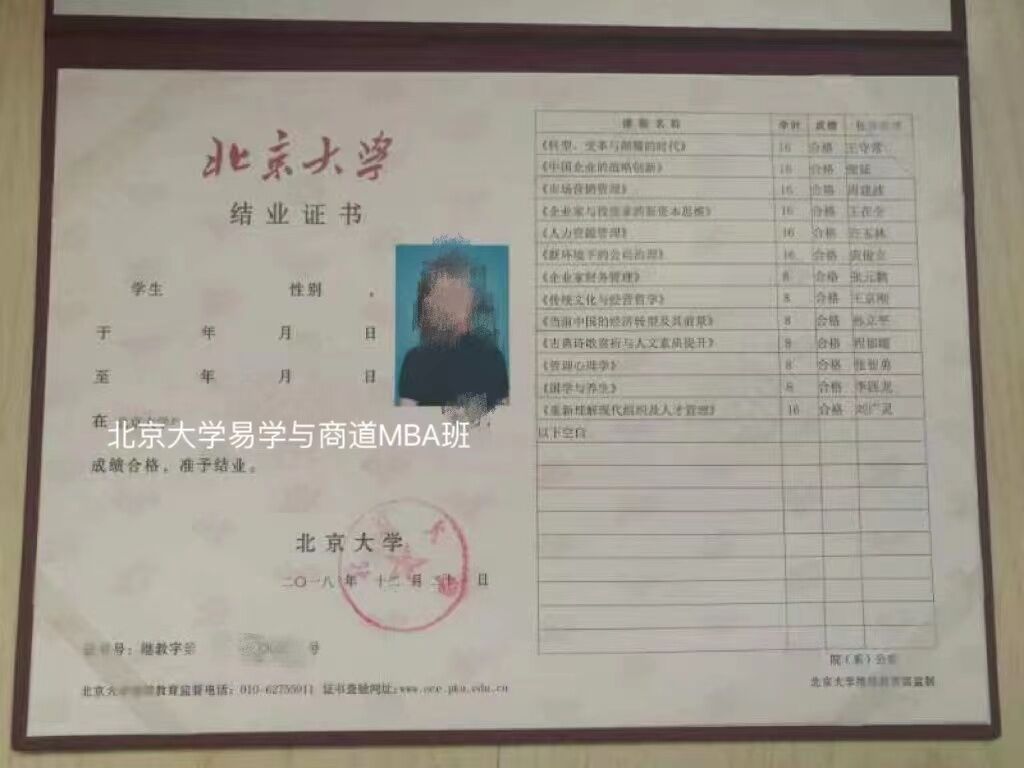 北京大学
结业证书
学生 性别 ，
于 年 月 日
至 年 月 日
在
北京大学易学与商道MBA班
成绩合格，准予结业。
北京大学
二〇一八年 十二月 日
证书号：继教字第 号
北京大学继续教育监督电话：010-62755911 证书查验网址：www.oce.pku.edu.cn
课程名称 学时 成绩
《转型、变革与颠覆的时代》 16 合格 王守常
《中国企业的战略创新》 16 合格
《市场营销管理》 16 合格 周建波
《企业家与投资家的新资本思维》 16 合格 王在全
《人力资源管理》 16 合格
《新环境下的公司治理》 16 合格
《企业家财务管理》 8 合格 张元鹏
《传统文化与经营哲学》 8 合格 王京刚
《当前中国的经济转型及其前景》 8 合格 孙立平
《古典诗歌赏析与人文素质提升》 8 合格 程郁缀
《管理心理学》 8 合格 张智勇
《国学与养生》 8 合格 李四龙
《重新理解现代组织及人才管理》 16 合格 刘广灵
以下空白
院（系）公章
北京大学继续教育部监制